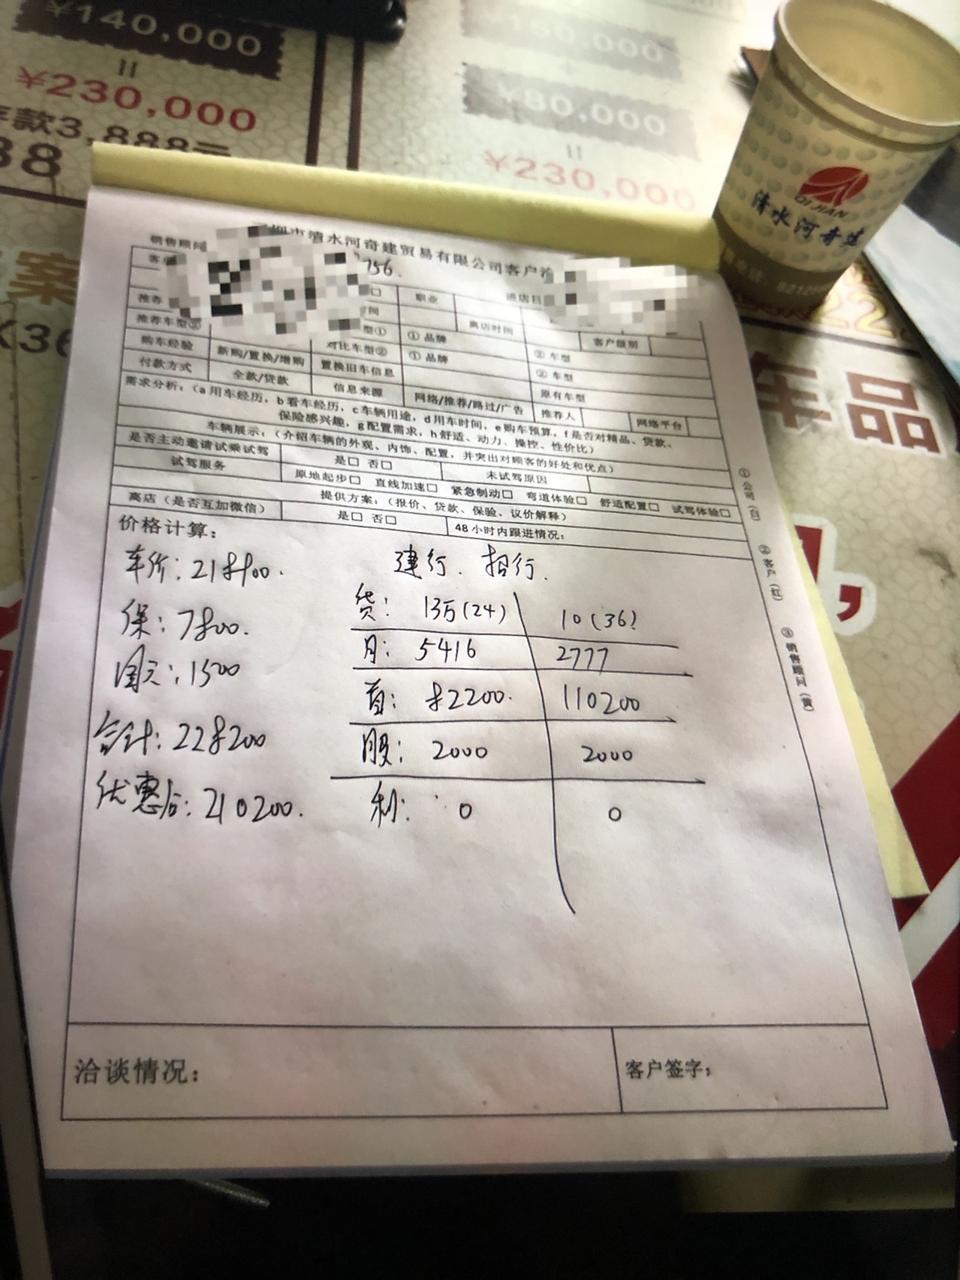 ¥140,000
=
¥230,000
存款3,888元
¥150,000
¥80,000
=
¥230,000
QI JIAN
清水河奇建
圳市清水河奇建贸易有限公司客户洽
销售顾问
756.
职业
进店日
推荐
离店时间
客户级别
推荐车型②
① 品牌
② 车型
购车经验
新购/置换/增购
对比车型②
① 品牌
② 车型
付款方式
全款/贷款
置换旧车信息
原有车型
信息来源
网络/推荐/路过/广告
推荐人
网络平台
需求分析:(a 用车经历, b 看车经历, c 车辆用途, d 用车时间, e 购车预算, f 是否对精品、贷款、
保险感兴趣, g 配置需求, h 舒适、动力、操控、性价比)
车辆展示:(介绍车辆的外观、内饰、配置,并突出对顾客的好处和优点)
是否主动邀请试乘试驾
是□ 否□
未试驾原因
试驾服务
原地起步□ 直线加速□ 紧急制动□ 弯道体验□ 舒适配置□ 试驾体验□
提供方案:(报价、贷款、保险、议价解释)
离店(是否互加微信)
是□ 否□
48 小时内跟进情况:
价格计算:
车价: 218900.
建行. 招行.
保: 7800.
贷: 13万(24) 10(36)
月: 5416 2777
1500
首: 82200. 110200
合计: 228200
服: 2000 2000
优惠后: 210200.
利: 0 0
洽谈情况:
客户签字:
①公司(白)
②客户(红)
③销售顾问(黄)
车品